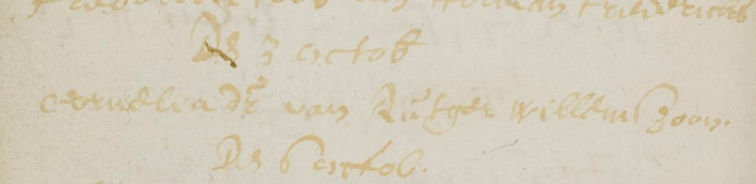 van Herman Frederick
Den 3 octob
Cornelia dr van Rutger Willemszoon.
Den 6 octob.